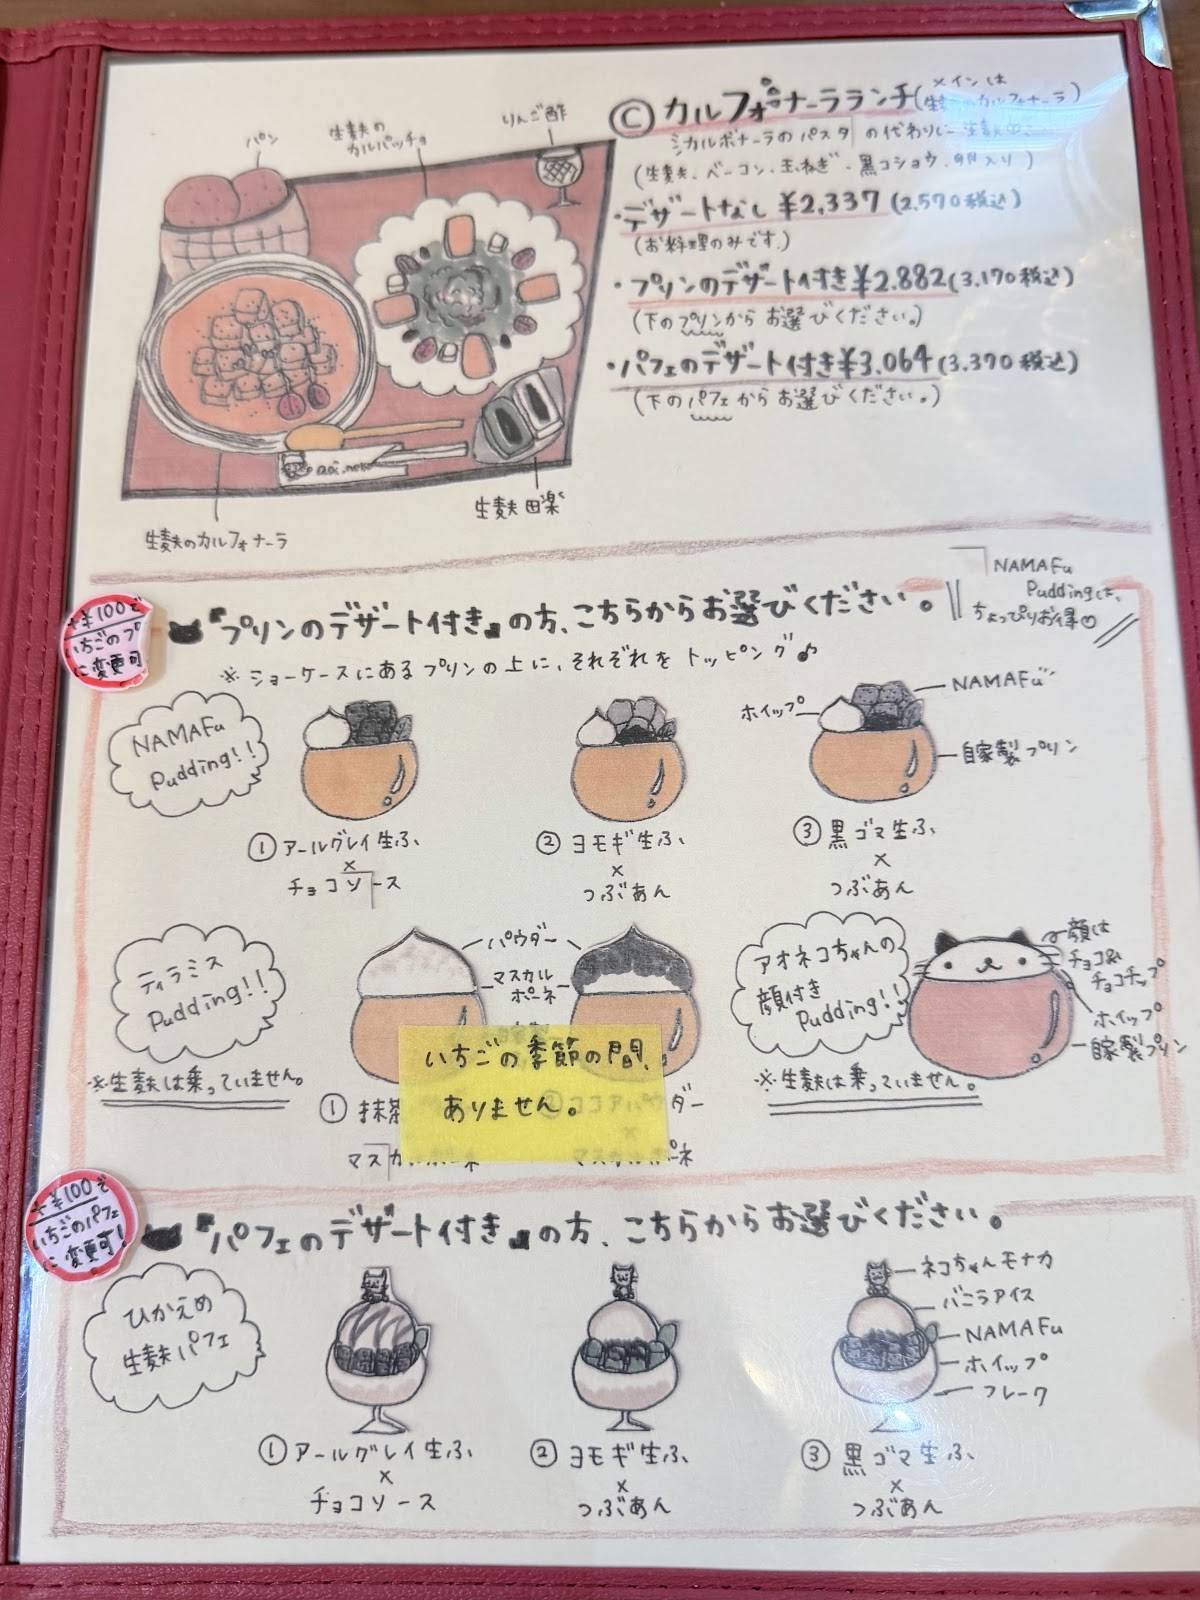 りんご酢
生麩の
カルパッチョ
パン
生麩のカルフォナーラ
生麩田楽
aoi.neko
Ⓒカルフォナーラランチ(メインは
生麩のカルフォナーラ)
カルボナーラのパスタの代わりに生麩
(生麩、ベーコン、玉ねぎ、黒コショウ、卵入り)
・デザートなし ¥2,337(2,570税込)
(お料理のみです。)
・プリンのデザート付き¥2.882(3.170税込)
(下のプリンからお選びください。)
・パフェのデザート付き¥3.064(3.370税込)
(下のパフェからお選びください。)
NAMAFu
Puddingは、
ちょっぴりお得
+¥100で
いちごのプ
に変更可
『プリンのデザート付き』の方、こちらからお選びください。
※ショーケースにあるプリンの上に、それぞれをトッピング♪
NAMAFu
Pudding!!
ホイップ
NAMAFu
自家製プリン
①アールグレイ生ふ
×
チョコソース
②ヨモギ生ふ
×
つぶあん
③黒ゴマ生ふ
×
つぶあん
ティラミス
Pudding!!
※生麩は乗っていません。
パウダー
マスカル
ポーネ
いちごの季節の間、
ありません。
①抹茶
マスカルポーネ
②ココアパウダー
×
マスカルポーネ
アオネコちゃんの
顔付き
Pudding!!
※生麩は乗っていません。
顔は
チョコ&
チョコチップ
ホイップ
自家製プリン
+¥100で
いちごのパフェ
に変更可!
『パフェのデザート付き』の方、こちらからお選びください。
ひかえめ
生麩パフェ
ネコちゃんモナカ
バニラアイス
NAMAFu
ホイップ
フレーク
①アールグレイ生ふ
×
チョコソース
②ヨモギ生ふ
×
つぶあん
③黒ゴマ生ふ
×
つぶあん